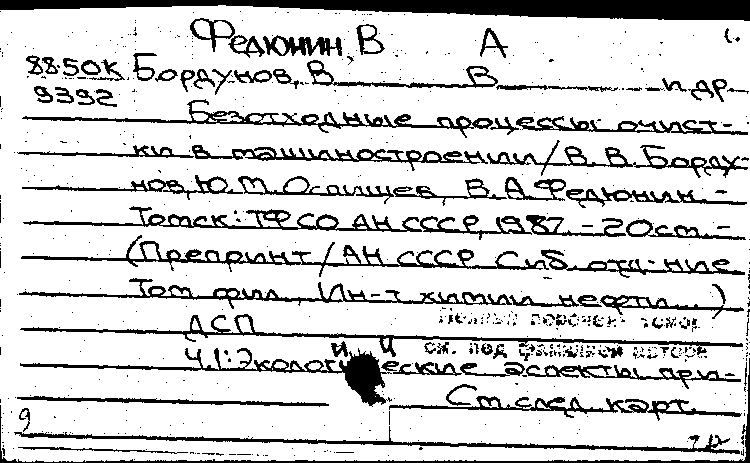 Федюнин, В А
1.
8850К Бордунов, В В и др.
9392
Безотходные процессы очист-
ки в машиностроении/В.В.Борду-
нов, Ю.М.Осипищев, В.А.Федюнин. -
Томск: ТФ СО АН СССР, 1987. - 20 см. -
(Препринт/АН СССР Сиб. отд-ние
Том. фил., Ин-т химии нефти...)
ДСП
Полный перечень томов
см. под фамилией автора
Ч.1: Экологические аспекты при-
См. след. карт.
9